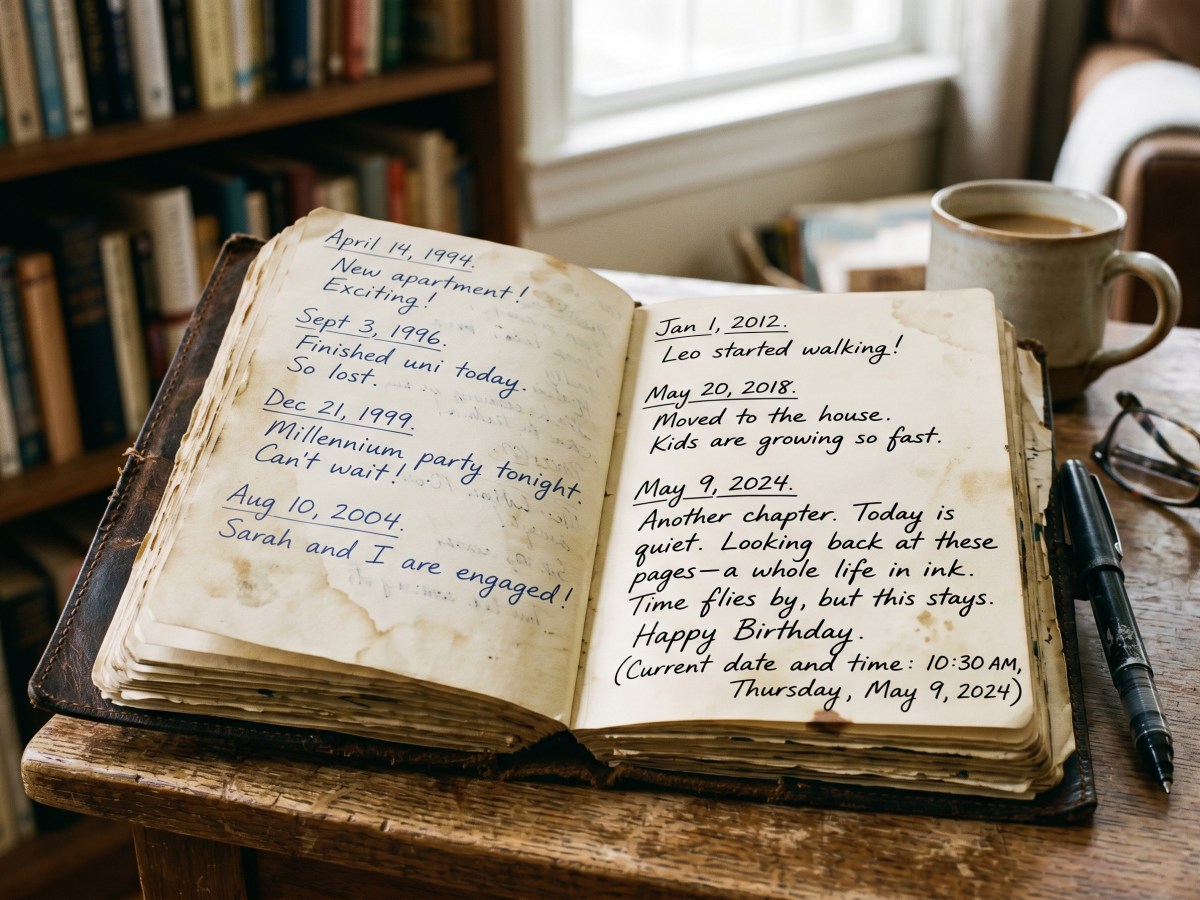 April 14, 1994.
New apartment!
Exciting!
Sept 3, 1996.
Finished uni today.
So lost.
Dec 21, 1999.
Millennium party tonight.
Can't wait!
Aug 10, 2004.
Sarah and I are engaged!
Jan 1, 2012.
Leo started walking!
May 20, 2018.
Moved to the house.
Kids are growing so fast.
May 9, 2024.
Another chapter. Today is
quiet. Looking back at these
pages—a whole life in ink.
Time flies by, but this stays.
Happy Birthday.
(Current date and time: 10:30 AM,
Thursday, May 9, 2024)